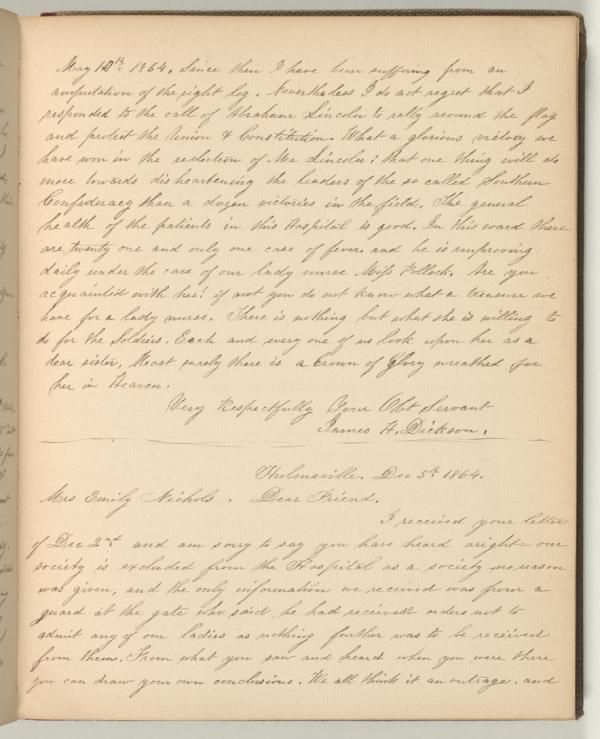 May 12th 1864. Since then I have been suffering from an
amputation of the right leg. Nevertheless I do not regret that I
responded to the call of Abraham Lincoln to rally around the flag
and protect the Union & Constitution. What a glorious victory we
have won in the reelection of Mr Lincoln; that one thing will do
more towards disheartening the leaders of the so called Southern
Confederacy than a dozen victories in the field. The general
health of the patients in this Hospital is good. In this ward there
are twenty one and only one case of fever. and he is improving
daily under the care of our lady nurse Miss Pollock. Are you
acquainted with her? if not you do not know what a treasure we
have for a lady nurse. There is nothing but what she is willing to
do for the Soldiers. Each and every one of us look upon her as a
dear sister, Most surely there is a Crown of Glory wreathed for
her in Heaven.
Very Respectfully Your Obt Servant
James H. Dickson.
Hulmeville. Dec 5th 1864.
Mrs Emily Nichols. Dear Friend.
I received your letter
of Dec 2nd and am sorry to say you have heard aright our
society is excluded from the Hospital as a society no reason
was given, and the only information we received was from a
guard at the gate who said he had received orders not to
admit any of our ladies as nothing further was to be received
from them. From what you saw and heard when you were there
you can draw your own conclusions. We all think it an outrage. and